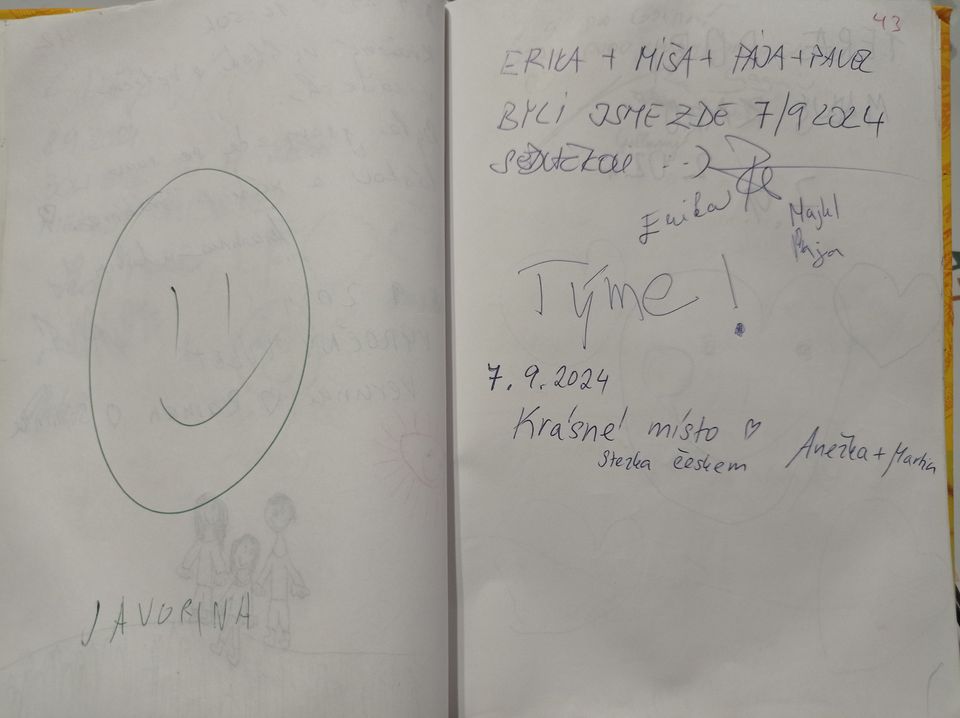 JAVORINA
43
ERIKA + MÍŠA + PÁJA + PAVEL
BYLI JSME ZDE 7/9 2024
:-)
Erika
Majkl
Pája
Týme!
7. 9. 2024
Krásné místo ♡
Stezka českem
Anežka + Martin